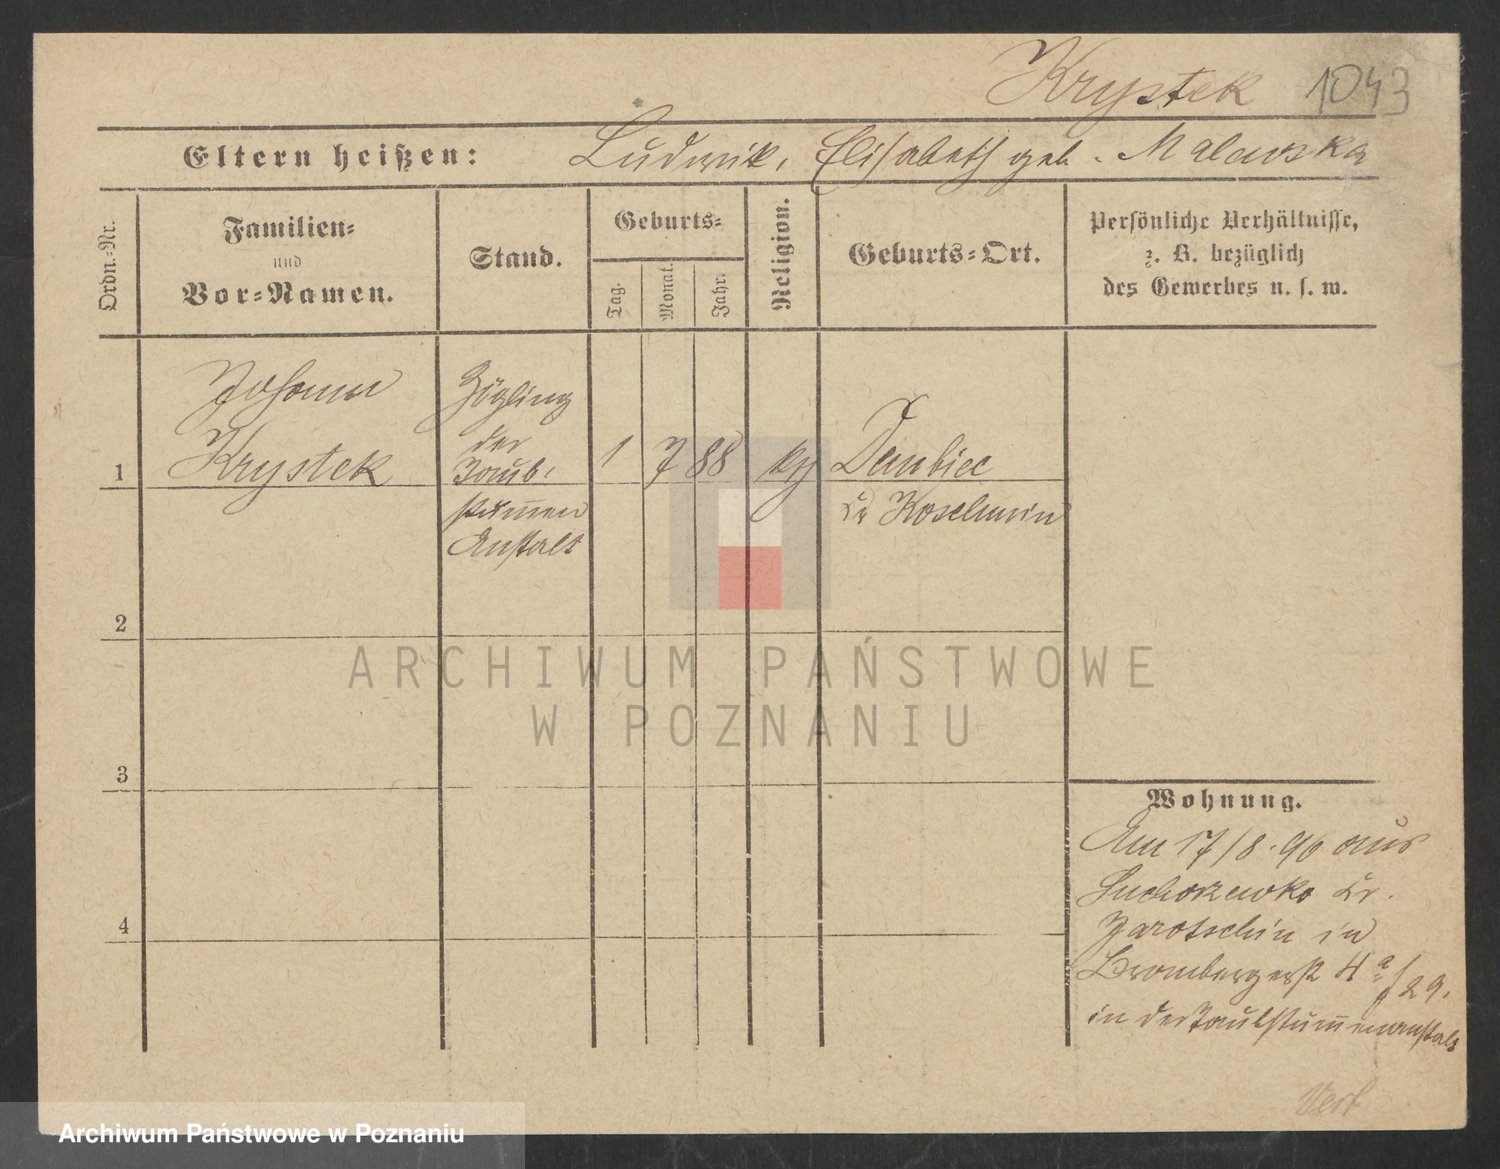 Krystek 1043
Eltern heißen: Ludwik, Elisabeth geb. Malewska
Ordn.-Nr.
Familien-
und
Vor-Namen.
Stand.
Geburts-
Tag.
Monat.
Jahr.
Religion.
Geburts-Ort.
Persönliche Verhältnisse,
z. B. bezüglich
des Gewerbes u. s. w.
Johann
Krystek
Zögling
der
Taub-
stum̅en
Anstalt
1
1 7 88 kg
Kr Koschmin
2
ARCHIWUM PAŃSTWOWE
W POZNANIU
3
Wohnung.
Am 17/8. 96 aus
Suchorzewko Kr.
Jarotschin in
Brombergerst 4 a / 29.
in der Taubstum̅enanstalt
4
Archiwum Państwowe w Poznaniu